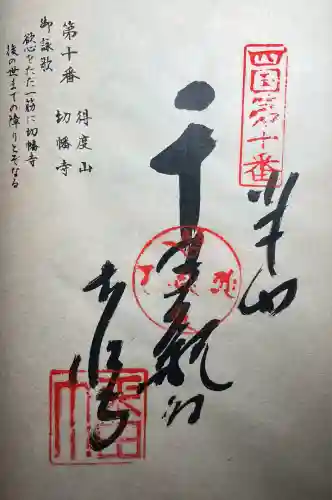 四国第十番
奉納
千手観音
切幡寺
得度山
切幡寺
第十番
御詠歌
欲心をたた一筋に切幡寺
後の世まての障りとそなる